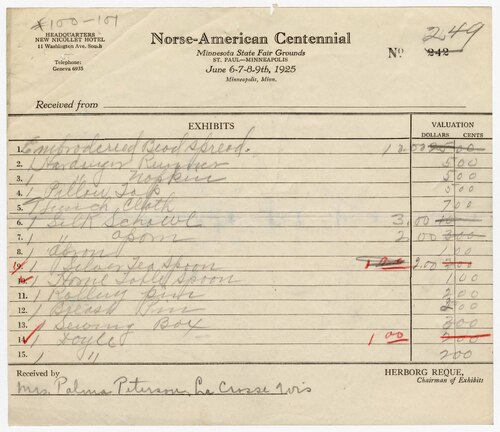 *100-101
HEADQUARTERS
NEW NICOLLET HOTEL
11 Washington Ave. South
Telephone:
Geneva 6935
Norse-American Centennial
Minnesota State Fair Grounds
ST. PAUL—MINNEAPOLIS
June 6-7-8-9th, 1925
Minneapolis, Minn.
No. 242 249
Received from
EXHIBITS VALUATION
DOLLARS CENTS
1. Embrodered Bead Spread. 12.00 25 00
2. 1 Hardanger Runner 5 00
3. 1 " Napkin 5 00
4. 1 Pillow Top 5 00
5. Lunch Cloth 7 00
6. 1 Silk Schawl 3.00 10 00
7. 1 " aporn 2.00 3 00
8. 1 apron 1 00
9. 1 Silver Tea Spoon 1.00 2.00 3 00
10. 1 Horne Table Spoon 1 00
11. 1 Rolling pin 2 00
12. 1 Breast Pin 2 00
13. 1 Sewing Box 3 00
14. 1 Doyle 1 00 2 00
15. 1 " 2 00
Received by
Mrs. Palma Peterson, La Crosse Wis
HERBORG REQUE,
Chairman of Exhibits